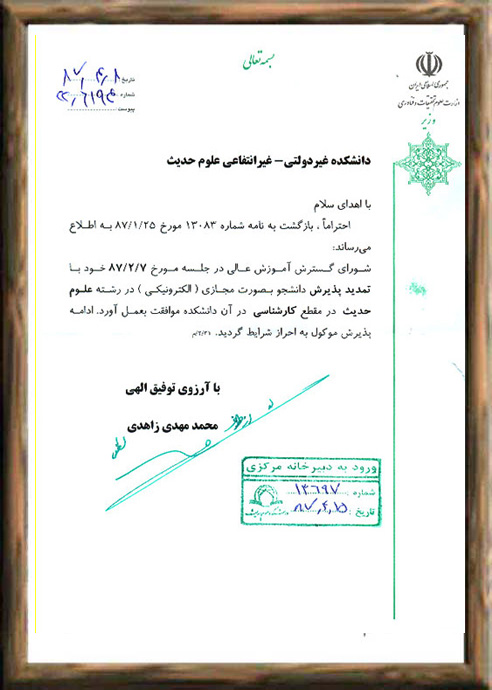 بسمه تعالی
جمهوری اسلامی ایران
وزارت علوم، تحقیقات و فناوری
وزیر
تاریخ ۸۷/۴/۸
شماره
پیوست
دانشکده غیردولتی– غیرانتفاعی علوم حدیث
با اهدای سلام
احتراماً ، بازگشت به نامه شماره ۱۳۰۸۳ مورخ ۸۷/۱/۲۵ به اطلاع
می‌رساند:
شورای گسترش آموزش عالی در جلسه مورخ ۸۷/۲/۷ خود با
تمدید پذیرش دانشجو بصورت مجازی ( الکترونیکی ) در رشته علوم
حدیث در مقطع کارشناسی در آن دانشکده موافقت بعمل آورد. ادامه
پذیرش موکول به احراز شرایط گردید. ۲/۳۱/م
با آرزوی توفیق الهی
محمد مهدی زاهدی
ورود به دبیرخانه مرکزی
شماره : ۱۴۶۹۷
تاریخ :